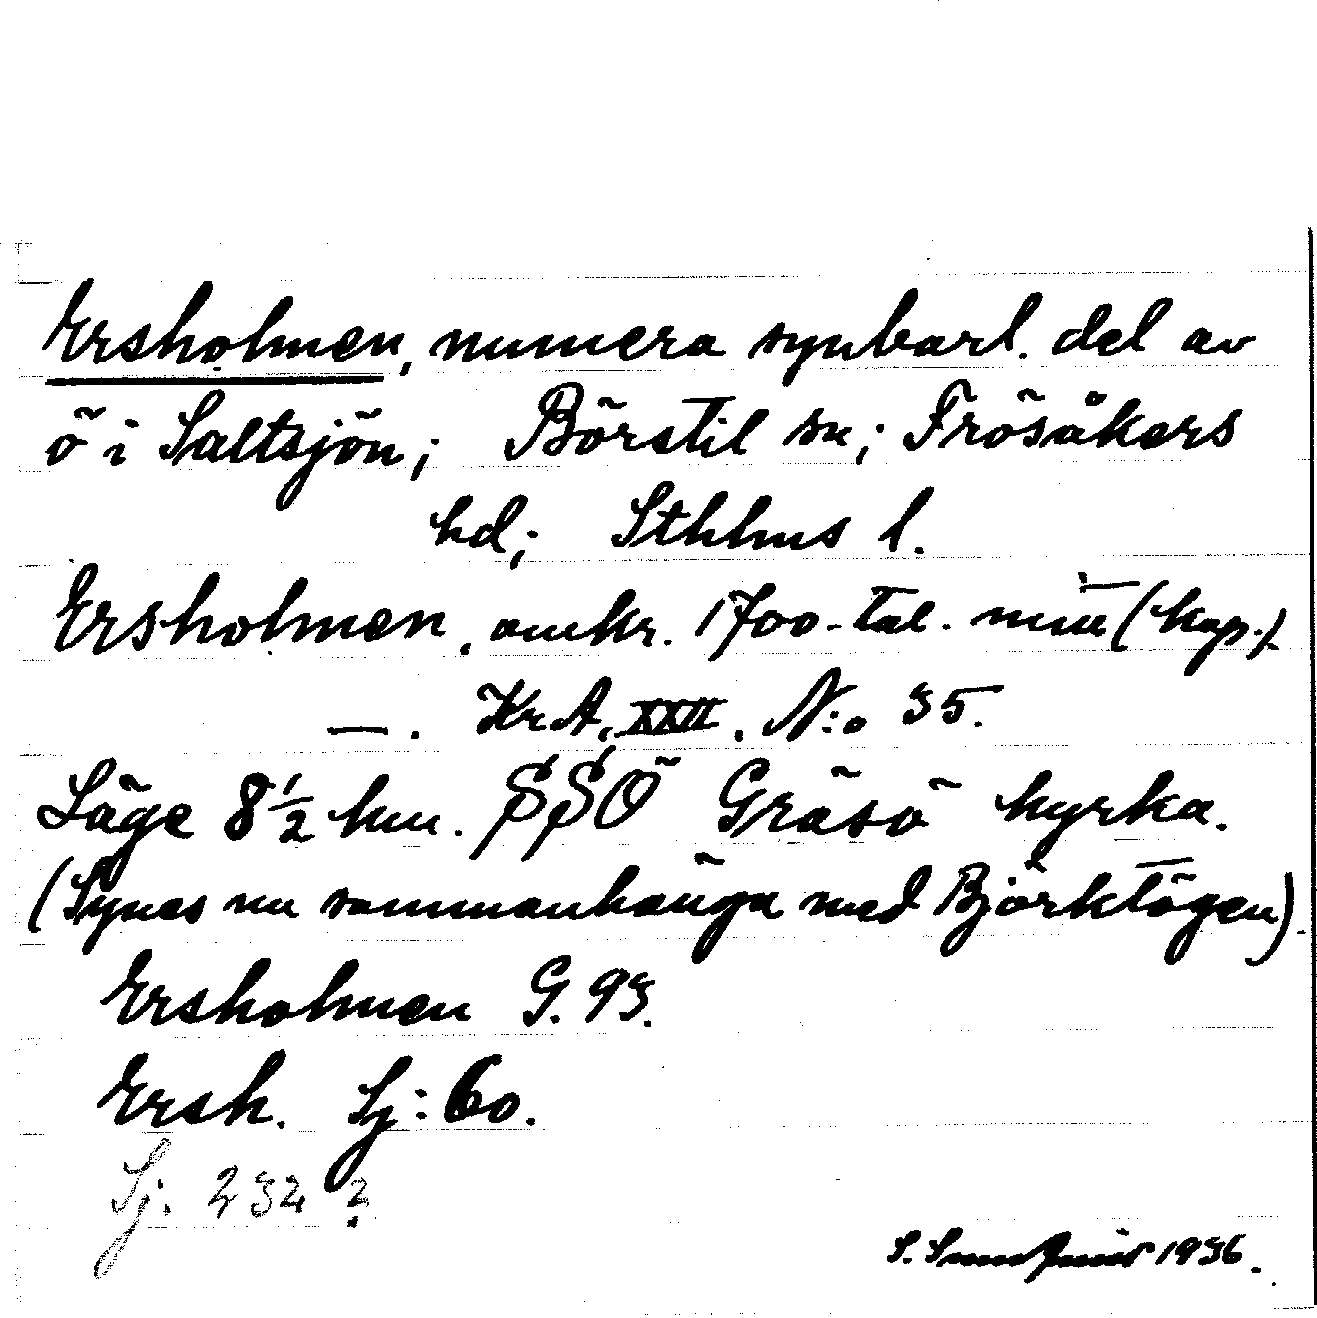 Ersholmen, numera synbarl. del av
ö i Saltsjön; Börstil sn; Frösåkers
hd; Sthlms l.
Ersholmen, omkr. 1700-tal. min (kap.)
—. KrA, XXII. N:o 35.
Läge 8 1/2 km. SSÖ Gräsö kyrka.
(Synes nu sammanhänga med Björktögen).
Ersholmen G. 93.
Ersh. Sj: 60.
Sj: 232 ?
S. 1936.